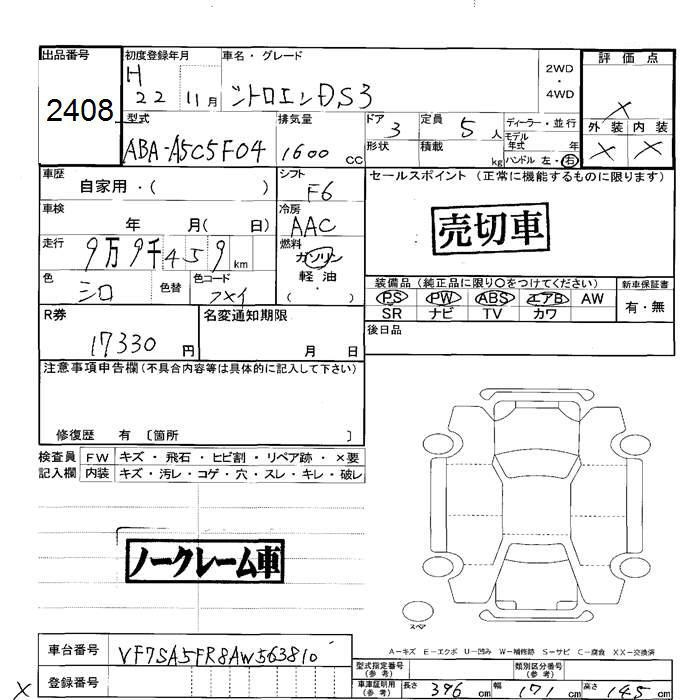 出品番号
2408
初度登録年月
H 22 11月
車名・グレード
シトロエンDS3
2WD
・
4WD
評価点
×
外装 内装
× ×
型式
ABA-A5C5F04
排気量
1600 cc
ドア
3
形状
定員
5 人
積載
kg
ディーラー・並行
モデル年式 年
ハンドル 左・右
車歴
自家用・( )
シフト
F6
車検
年 月( 日)
冷房
AAC
走行
9万9千459 km
燃料
ガソリン
軽油
( )
色
シロ
色替
色コード
R券
17330 円
名変通知期限
月 日
セールスポイント (正常に機能するものに限ります)
売切車
装備品 (純正品に限り○をつけてください)
PS PW ABS エアB AW
SR ナビ TV カワ
新車保証書
有・無
後日品
注意事項申告欄 (不具合内容等は具体的に記入して下さい)
修復歴 有 〔箇所 〕
検査員 FW キズ・飛石・ヒビ割・リペア跡・×要
記入欄 内装 キズ・汚レ・コゲ・穴・スレ・キレ・破レ
ノークレーム車
スペア
A-キズ E-エクボ U-凹み W-補修跡 S-サビ C-腐食 XX-交換済
車台番号
VF7SA5FR8AW563810
登録番号
×
型式指定番号
(参考)
類別区分番号
(参考)
車庫証明用
(参考)
長さ 396 cm 幅 171 cm 高さ 145 cm